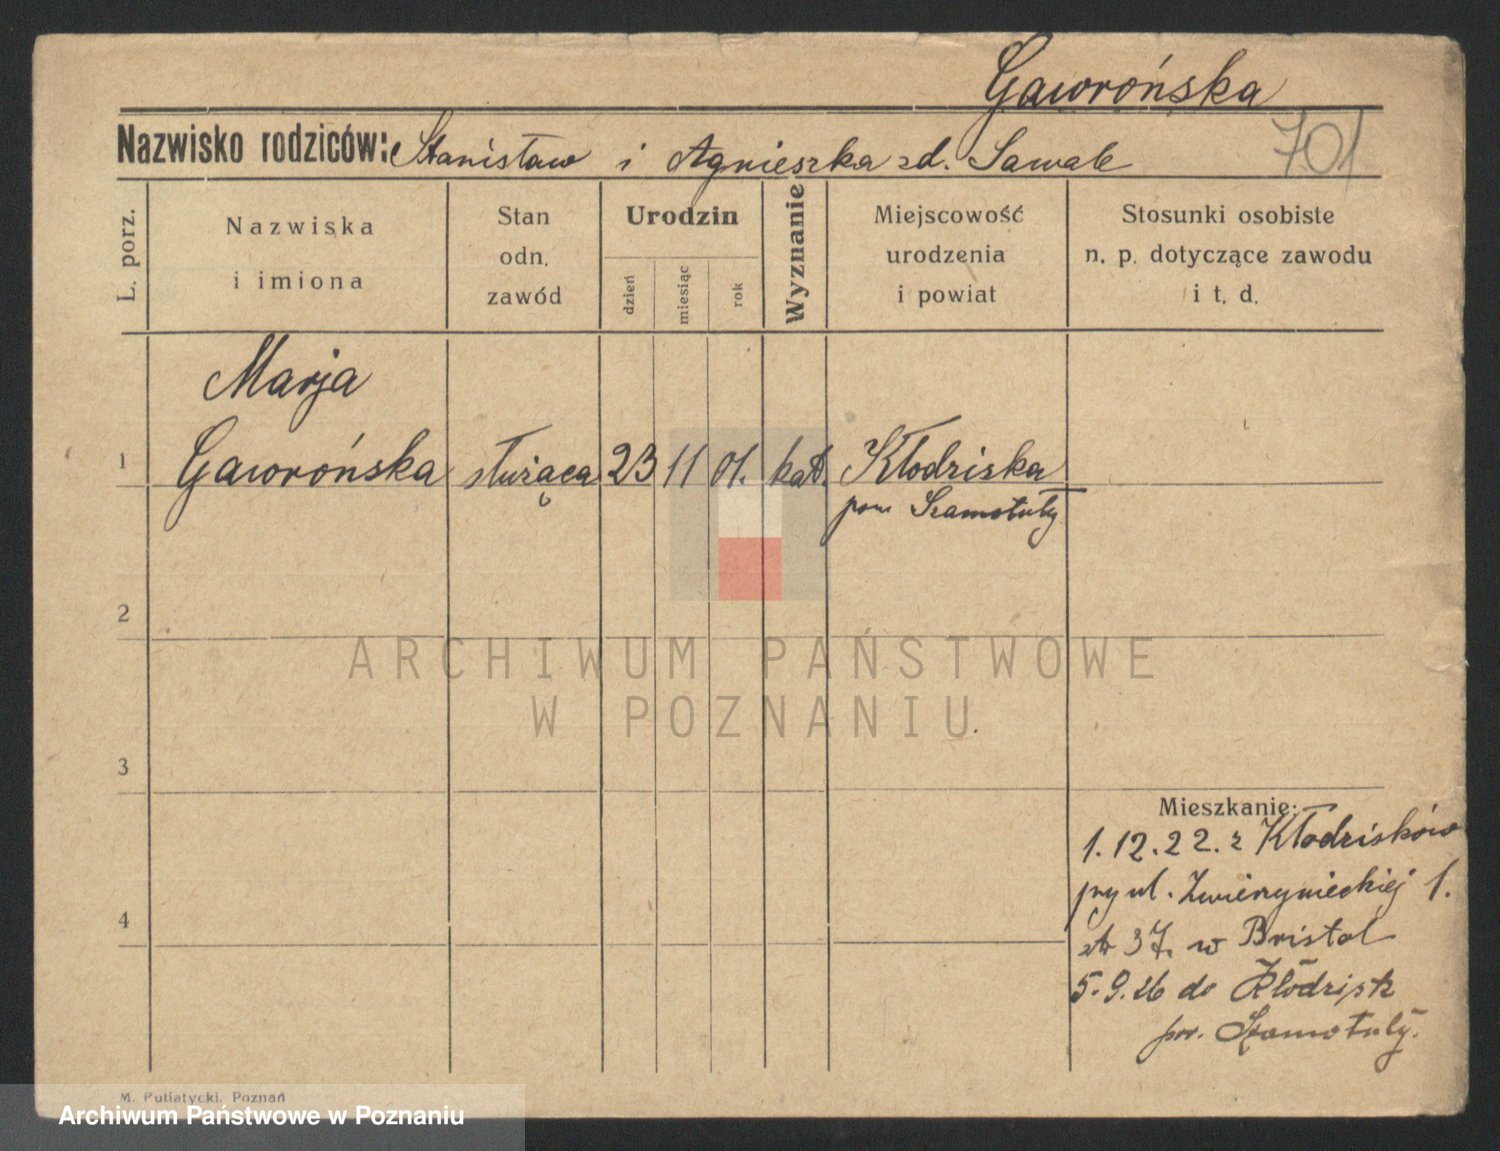 Gaworońska
701
Nazwisko rodziców: Stanisław i Agnieszka zd. Sawale
L. porz.
Nazwiska
i imiona
Stan
odn.
zawód
Urodzin
dzień
miesiąc
rok
Wyznanie
Miejscowość
urodzenia
i powiat
Stosunki osobiste
n. p. dotyczące zawodu
i t. d.
Marja
1 Gaworońska służąca 23 11 01. kat. Kłodziska
pow Szamotuły
2
ARCHIWUM PAŃSTWOWE
W POZNANIU
3
Mieszkanie:
1.12.22. z Kłodzisków
przy ul. Zwierzynieckiej 1.
37. w Bristol
4
5.9.26 do Kłodzisk
pow. Szamotuły.
M. Putiatycki, Poznań
Archiwum Państwowe w Poznaniu